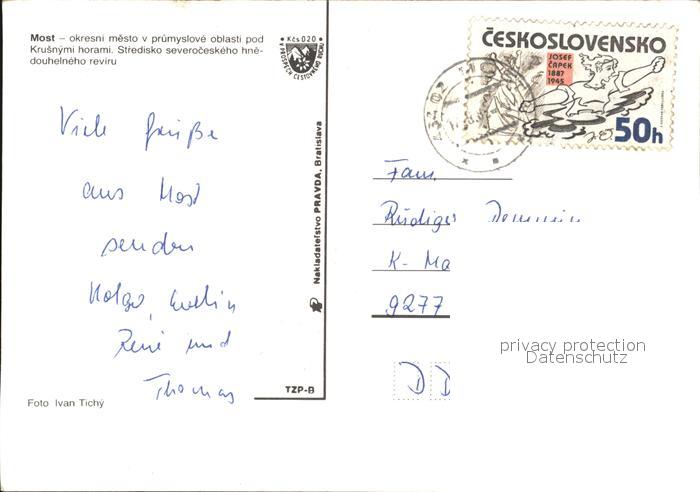 Most – okresní město v průmyslové oblasti pod
Krušnými horami. Středisko severočeského hně-
douhelného reviru
Kčs 0 20
V PROSPĚCH CESTOVNÍHO RUCHU
Viele Grüße
aus Most
senden
Holger, Evelin
René und
Thomas
Foto Ivan Tichý
Nakladateľstvo PRAVDA, Bratislava
TZP-B
ČESKOSLOVENSKO
JOSEF
ČAPEK
1887
1945
50h
Fam.
Rüdiger
K- Ma
9277
DD
privacy protection
Datenschutz